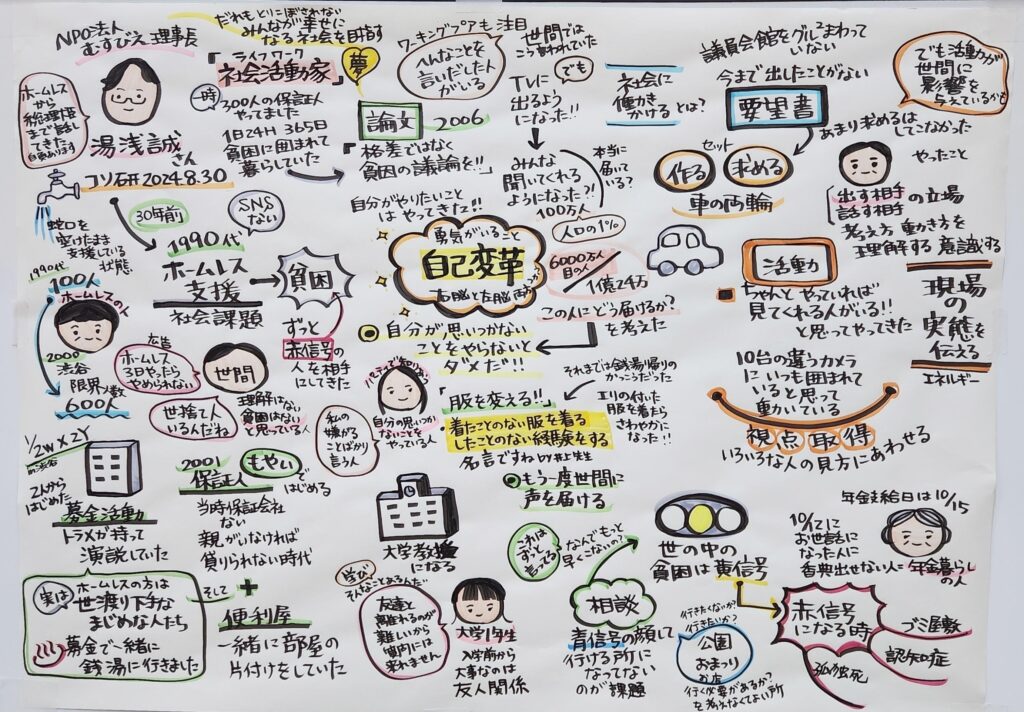 NPO法人
むすびえ理事長
だれもとりこぼされない
みんなが幸せに
なる社会を目指す
夢
ライフワーク
社会活動家
ホームレス
から
まで話し
てきた
湯浅誠さん
コソ研2024.8.30
一時
300人の保証人
やってました
1日24H 365日
貧困に囲まれて
暮らしていた
ワーキングプアも注目
へんなことを
言いだした人
がいる
論文 2006
「格差ではなく
貧困の議論を!!」
世間では
こう言われていた
でも
TVに
出るよう
になった!!
みんな
聞いてくれる
ようになった?!
本当に
届いてる?
100万人
人口の1%
6000万人
目の人
1億2千万
この人にどう届けるか?
を考えた
社会に
働きかける とは?
議員会館をグルグルまわって
いない
今まで出したことがない
要望書
あまり求めるは
してこなかった
セット
作る
求める
車の両輪
でも活動が
世間に
影響を
与えているかも
やったこと
出す相手
話す相手
の立場
考え方 動き方を
理解する 意識する
現場
の
実態を
伝える
エネルギー
活動
ちゃんとやっていれば
見てくれる人がいる!!
と思ってやってきた
10台の違うカメラ
にいつも囲まれて
いると思って
動いている
視点取得
いろいろな人の見方にあわせる
蛇口を
空けたまま
支援している
状態
30年前
SNS
ない
1990代
ホームレス
支援
社会課題
貧困
ずっと
赤信号の
人を相手
にしてきた
1990代
100人
ホームレスの人
2000
渋谷
限界人数
600人
広告
ホームレス
3日やったら
やめられない
世間
世捨て人
いるんだね
理解はない
貧困はない
と思っている人
自分がやりたいこと
はやってきた!!
勇気がいること
自己変革
右脳と左脳
自分が思いつかない
ことをやらないと
ダメだ!!
自分の思いつかない
ことをやっている人
私の
嫌がる
ことばかり
言う人
それまでは銭湯帰りの
かっこうだった
「服を変える!!」
エリの付いた
服を着たら
さわやかに
なった!!
着たことのない服を着る
したことのない経験をする
名言ですね by井上先生
もう一度世間に
声を届ける
1/2W×2Y
2人から
はじめた
募金活動
トラメが持って
演説していた
2001
保証人
もやい
ではじめる
当時保証会社
ない
親がいなければ
借りられない時代
実は
ホームレスの方は
世渡り下手な
まじめな人たち
募金で一緒に
銭湯に行きました
そして
+
便利屋
一緒に部屋の
片付けをしていた
大学教授
になる
学び
そんなことあるんだ
友達と
離れるのが
難しいから
案内には
来れません
大学1年生
入学前から
大事なのは
友人関係
これは
ずっと
言ってる
なんでもっと
早くこないの?
相談
青信号の顔して
行ける所に
なってない
のが課題
世の中の
貧困は黄信号
行きたくないか?
行きたいか?
公園
おまつり
お店
行く必要があるか?
を考えなくてよい所
年金支給日は10/15
10/12に
お世話に
なった人に
香典出せない人
年金暮らし
の人
赤信号
になる時
ゴミ屋敷
認知症
孤独死